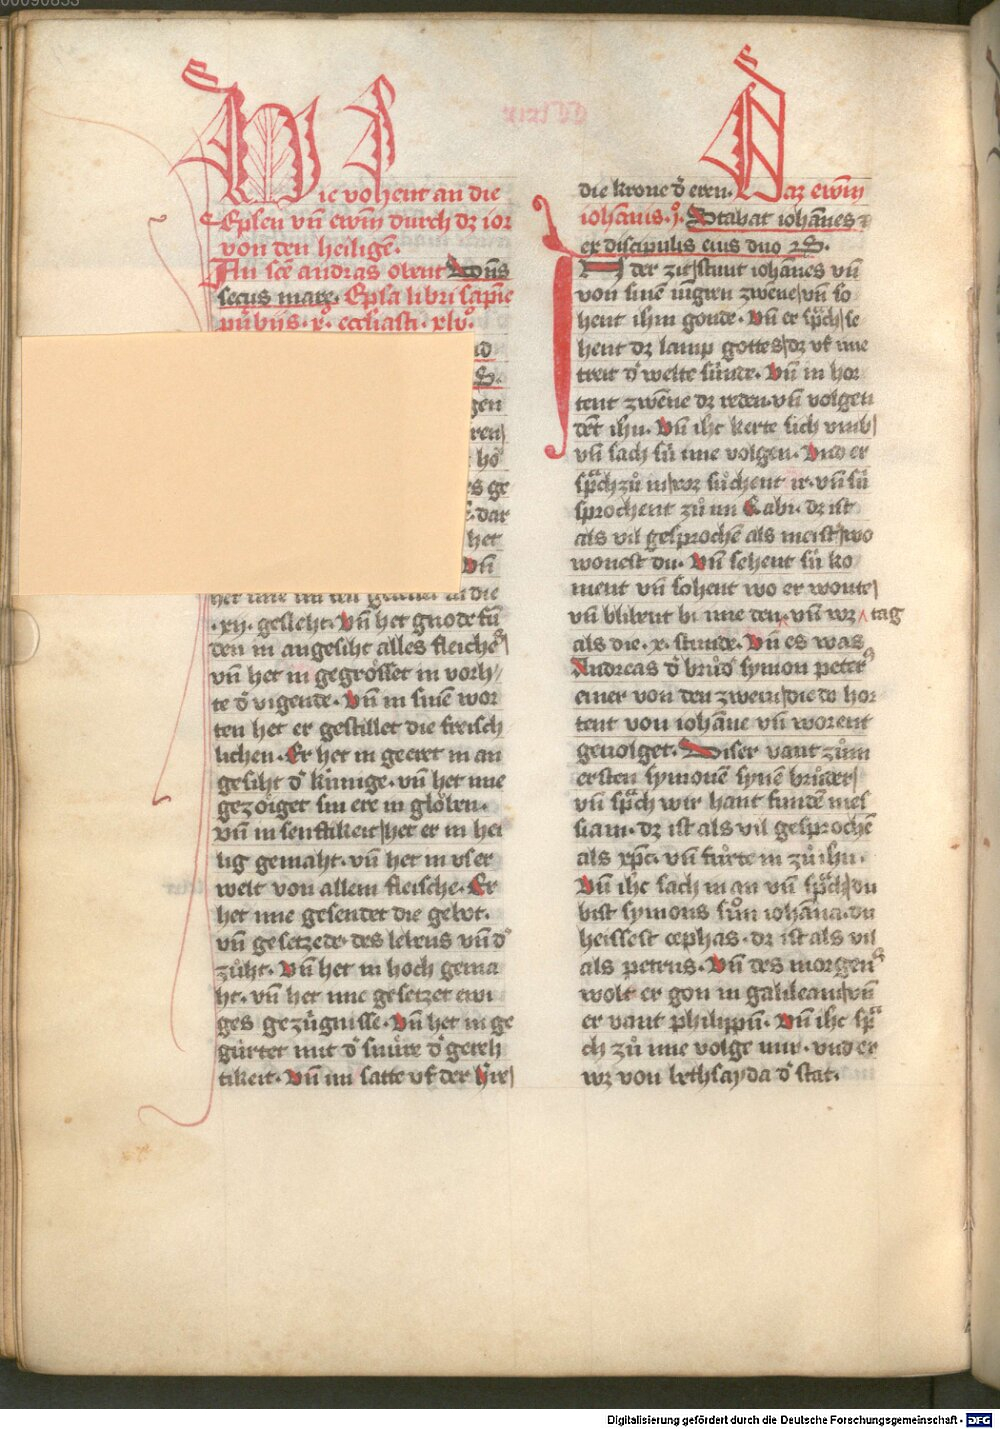 Hie vohent an die
Epseln vñ ewñ durch dz ior
von den heiligē.
An scē andras obent Domūs
secus mare. Epsa libri sapiē
puͤbijs. xͦ. ecclīasti. xlvͦ.
gen
ren
hö
s ge
dar
het
Vñ
die
.xij. geslecht. Vñ het gnode fun
den in angesiht alles fleiches
vñ het in gegrösset in vorh
te dʼ vigende. Vñ in sinē wor
ten het er gestillet die freisch
lichen. Er het in geeret in an
gesiht dʼ künnige. vñ het ime
gezöiget sin ere in glöben.
vñ in senftikeit het er in hei
lig gemaht. vñ het in vser
welt von allem fleische. Er
het ime gesendet die gebot.
vñ gesetzede des lebens vñ dʼ
zuͦht. Vñ het in hoch gema
ht. vñ het ime gesetzet ewi
ges gezügnisse. Vñ het in ge
gürtet mit dʼ snuͤre dʼ gereh
tikeit. Vñ im satte vf der hʼre
die krone dʼ eren. Daz ewñm
iohānis. jͦ. Stabat iohānes
ex discipulis eius duo
IN der zit stunt iohānes vñ
von sinē iūgern zwene vñ so
hent ihm gonde. Vñ er sp̄ch se
hent dz lamp gottes dz vf ime
treit dʼ welte sünde. Vñ in hor
tent zwēne dz reden. vñ volgen
dēt ihu. Vñ ihc kerte sich vmb
vñ sach sü ime volgen. Vnd er
sp̄ch zuͦ in wz suͦchent ir. vñ sü
sprochent zuͦ im Rabi. dz ist
als vil gesprochē als meister wo
wonest du. Vñ sehent sü ko
ment vñ sohent wo er wonte
vñ blibent bi ime den. vñ wz tag
als die .x. stunde. Vñ es was
Andreas dʼ bruͦdʼ symon peters
einer von den zwein die do hor
tent von iohāne vñ worent
gevolget. Diser vant zuͦm
ersten symonē synē bruͦder
vñ sp̄ch wir hant fundē mes
siam. dz ist als vil gesprochē
als xp̄c. vñ fuͤrte in zuͦ ihu.
Vñ ihc sach in an vñ sp̄ch du
bist symons suͦn iohāna. du
heissest cephas. dz ist als vil
als petrus. Vñ des morgens
wolt er gon in galileam vñ
er vant philippū. Vñ ihc sp̄
ch zuͦ ime volge mir. vnd er
wz von bethsayda dʼ stat.
Digitalisierung gefördert durch die Deutsche Forschungsgemeinschaft - DFG